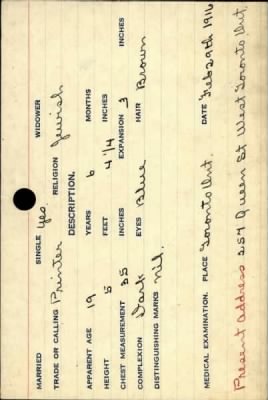 MARRIED SINGLE yes WIDOWER
TRADE OR CALLING Printer RELIGION Jewish
DESCRIPTION.
APPARENT AGE 19 YEARS 6 MONTHS
HEIGHT 5 FEET 4 1/4 INCHES
CHEST MEASUREMENT 35 INCHES EXPANSION 3 INCHES
COMPLEXION Dark EYES Blue HAIR Brown
DISTINGUISHING MARKS Nil.
MEDICAL EXAMINATION. PLACE Toronto Ont. DATE Feb 29th 1916
Present Address 254 Queen St West Toronto Ont.